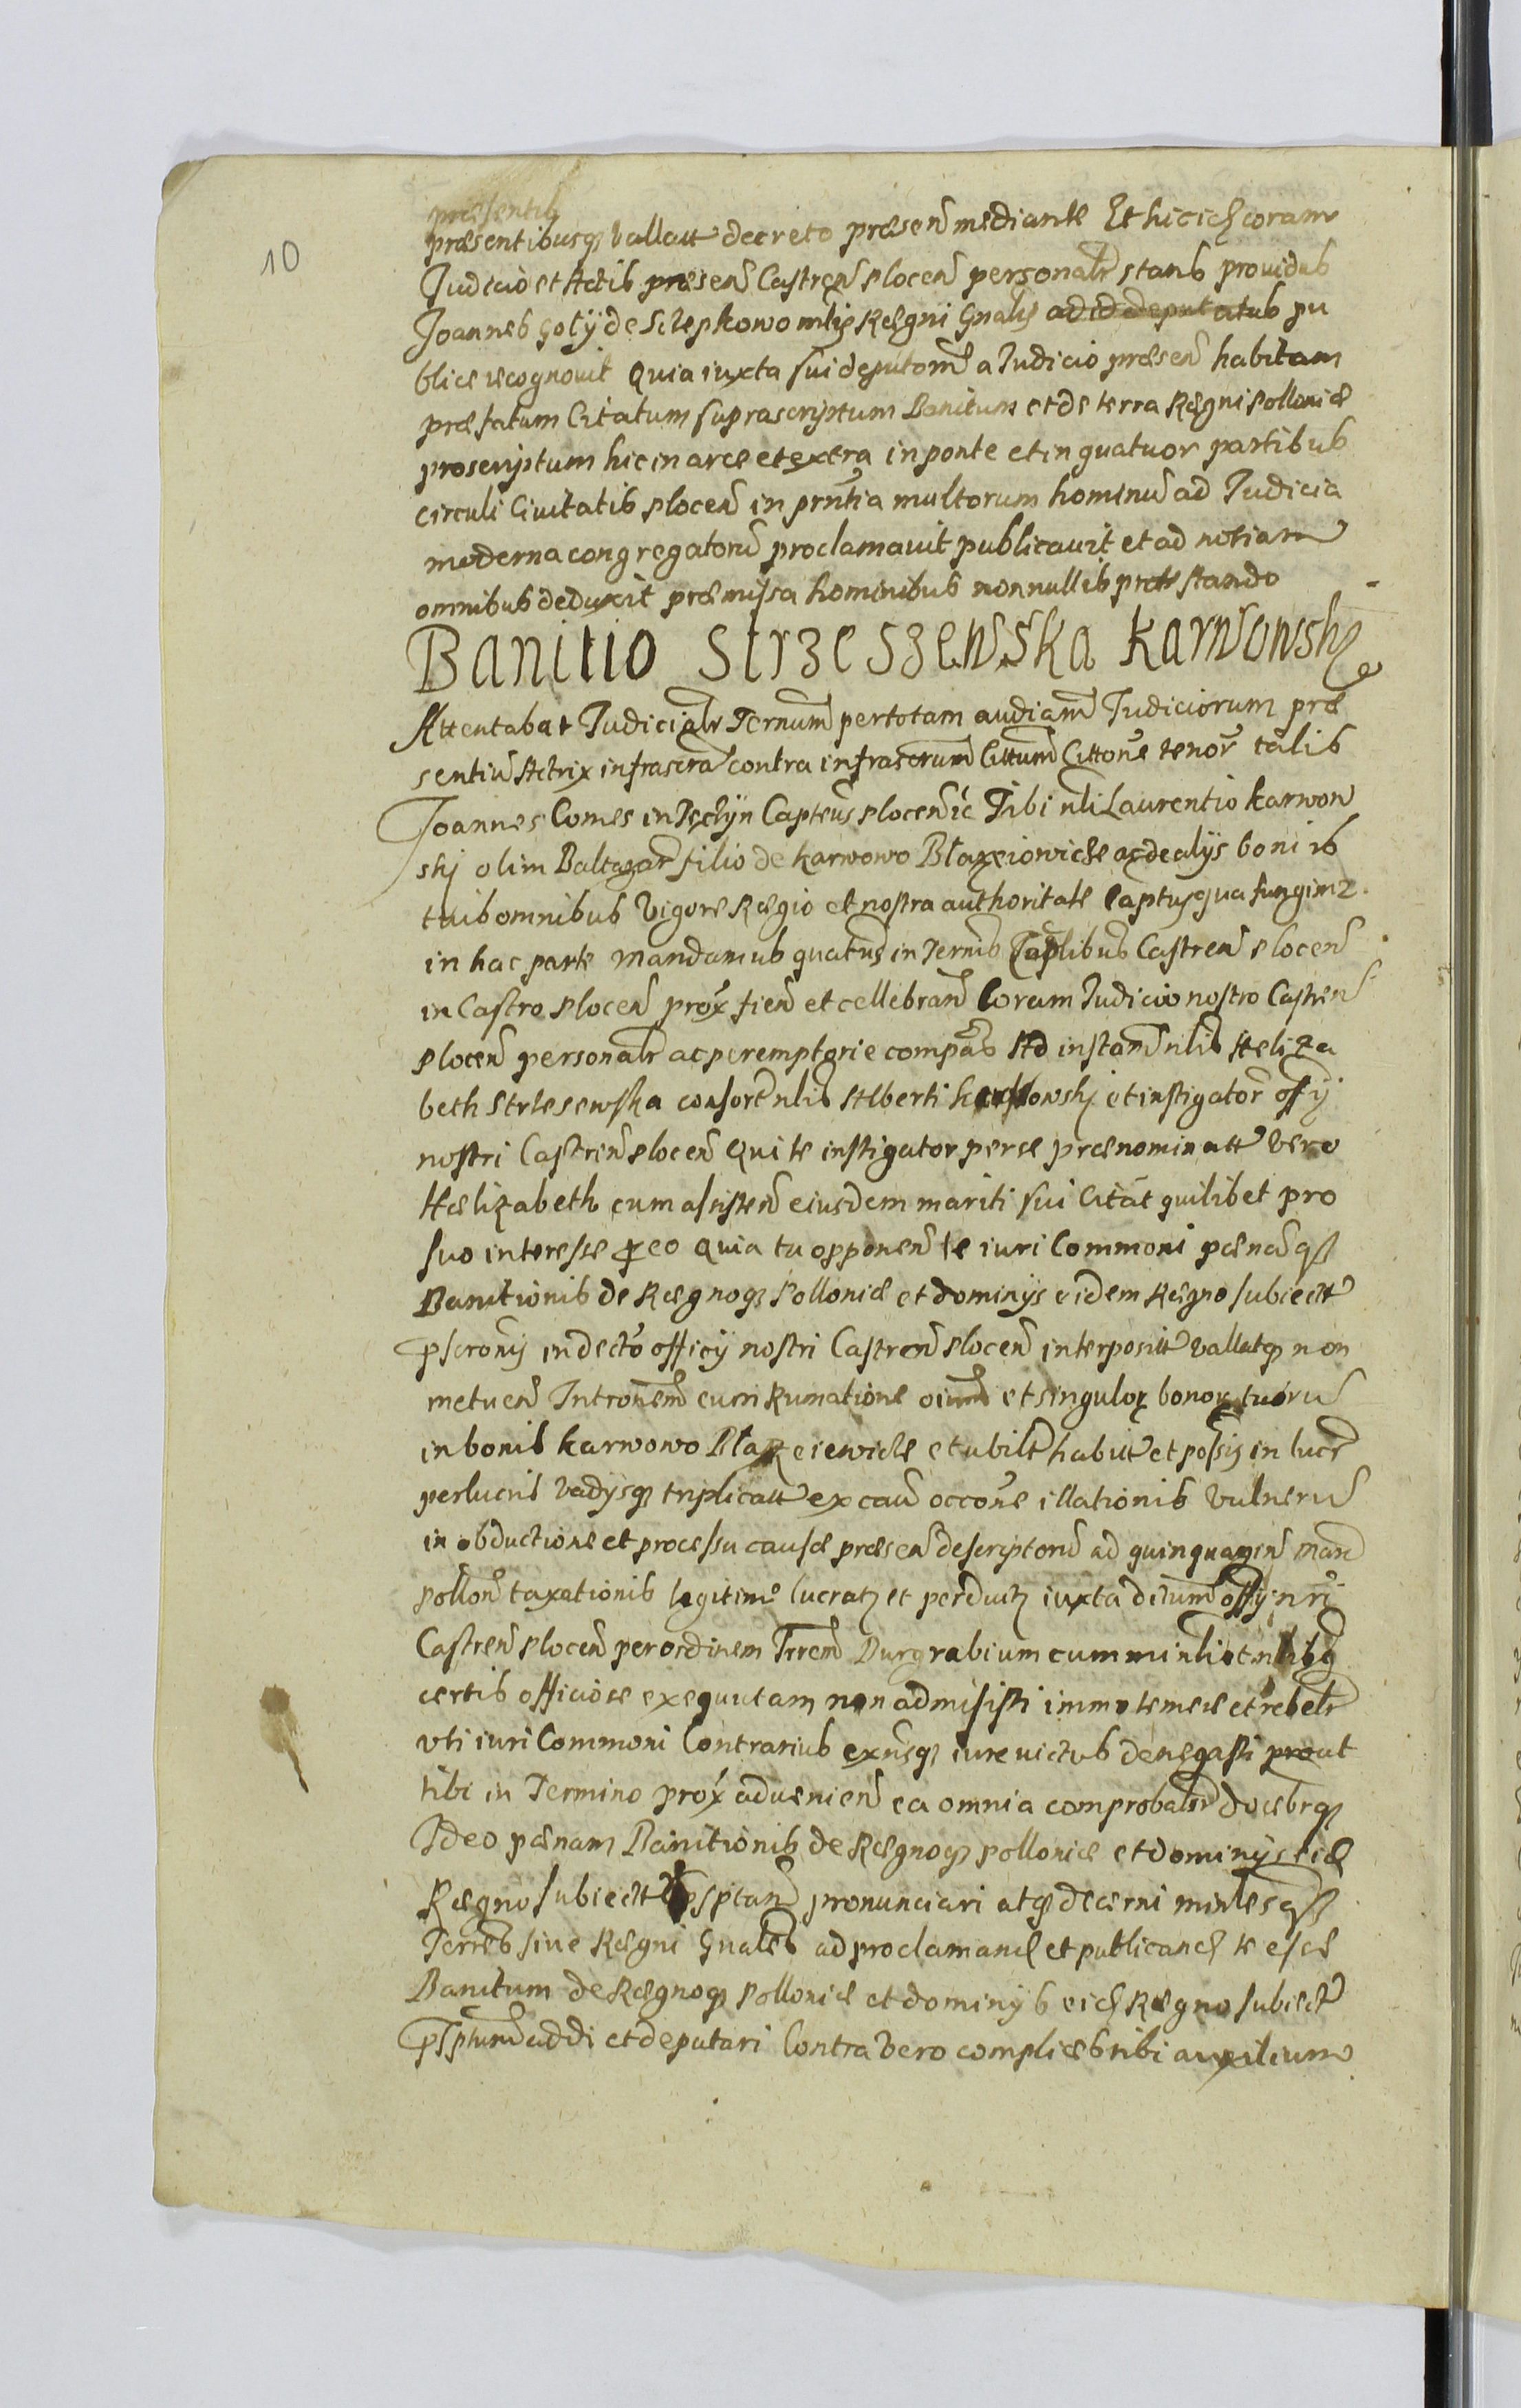 10
præsentib
præsentibusq vallatt decreto præsen mediante Et hic id coram
Judicio et Actis præsen Castren Plocen personalr stans providus
Joannes Goły de Sczepkowo mlis Regni Gnalis ad id deputatus pu
blice recognovit Quia iuxta sui deputonem a Judicio præsen habitam
præfatum Citatum suprascriptum Banitum et de terra Regni Polloniæ
proscriptum hic in arce et extra in ponte et in quatuor partibus
circuli Civitatis Plocen in prntia multorum hominu ad Judicia
moderna congregatoru proclamavit publicavit et ad notiam
omnibus deduxit præmissa hominibus nonnullis protestando
Banitio Strzeszewska Karwowsky
Attentabat Judicialr Ternum per totam audiam Judiciorum præ
sentiu Actrix infrascra contra infrascrum Cittum Cittone tenor talis
Joannes Comes in Tęczyn Capteus Plocen ic Tibi nli Laurentio Karwow
skj olim Baltazar filio de Karwowo Błazeiowicze ac de alys bonis
tuis omnibus Vigore Regio et nostra authoritate Captus qua fungimr
in hac parte Mandamus quatus in Ternis Caplibus Castren Plocen
in Castro Plocen prox fien et cellebran Coram Judicio nostro Castren
Plocen personalr ac peremptorie compas Ad instam nlis Heliza
beth Strzesewska consort nlis Alberti Karwowskj et instigator offy
nostri Castren Plocen Qui te instigator per se prænominatt vero
Hælizabeth cum assisten eiusdem mariti sui Citat quilibet pro
suo interesse Pro eo Quia tu opponen te iuri Commoni pænaq
Banitionis de Regnoq Polloniæ et dominys eidem Regno subiectt
pscrony in decto officy nostri Castren Plocen interpositt vallatq non
metuen Intronem cum Rumatione oium et singulor bonor tuoru
in bonis Karwowo Błazeiewicze et ubilt habitt et possis in lucr
perlucris vadysq triplicatt ex cau occone illationis vulneru
in obductione et processu causæ præsen descriptoru ad quinquagin mar
pollon taxationis legitime lucratz et perductz iuxta ditum offy nri
Castren Plocen per ordinem Terren Burgrabium cum minli et nlibus
certis officiose exequutam non admisisti immo temere et rebelr
uti iuri Commoni Contrarius exnsq iure victus denegasti prout
tibi in Termino prox advenien ea omnia comprobabr docebrq
Ideo pænam Banitionis de Regnoq Polloniæ et dominys eid
Regno subiectt psptan pronunciari atq decerni minles q
Terres sive Regni Gnales ad proclamand et publicand te esse
Banitum de Regnoq Polloniæ et dominys eid Regno subiectt
psptum addi et deputari Contra vero complices tibi auxilium